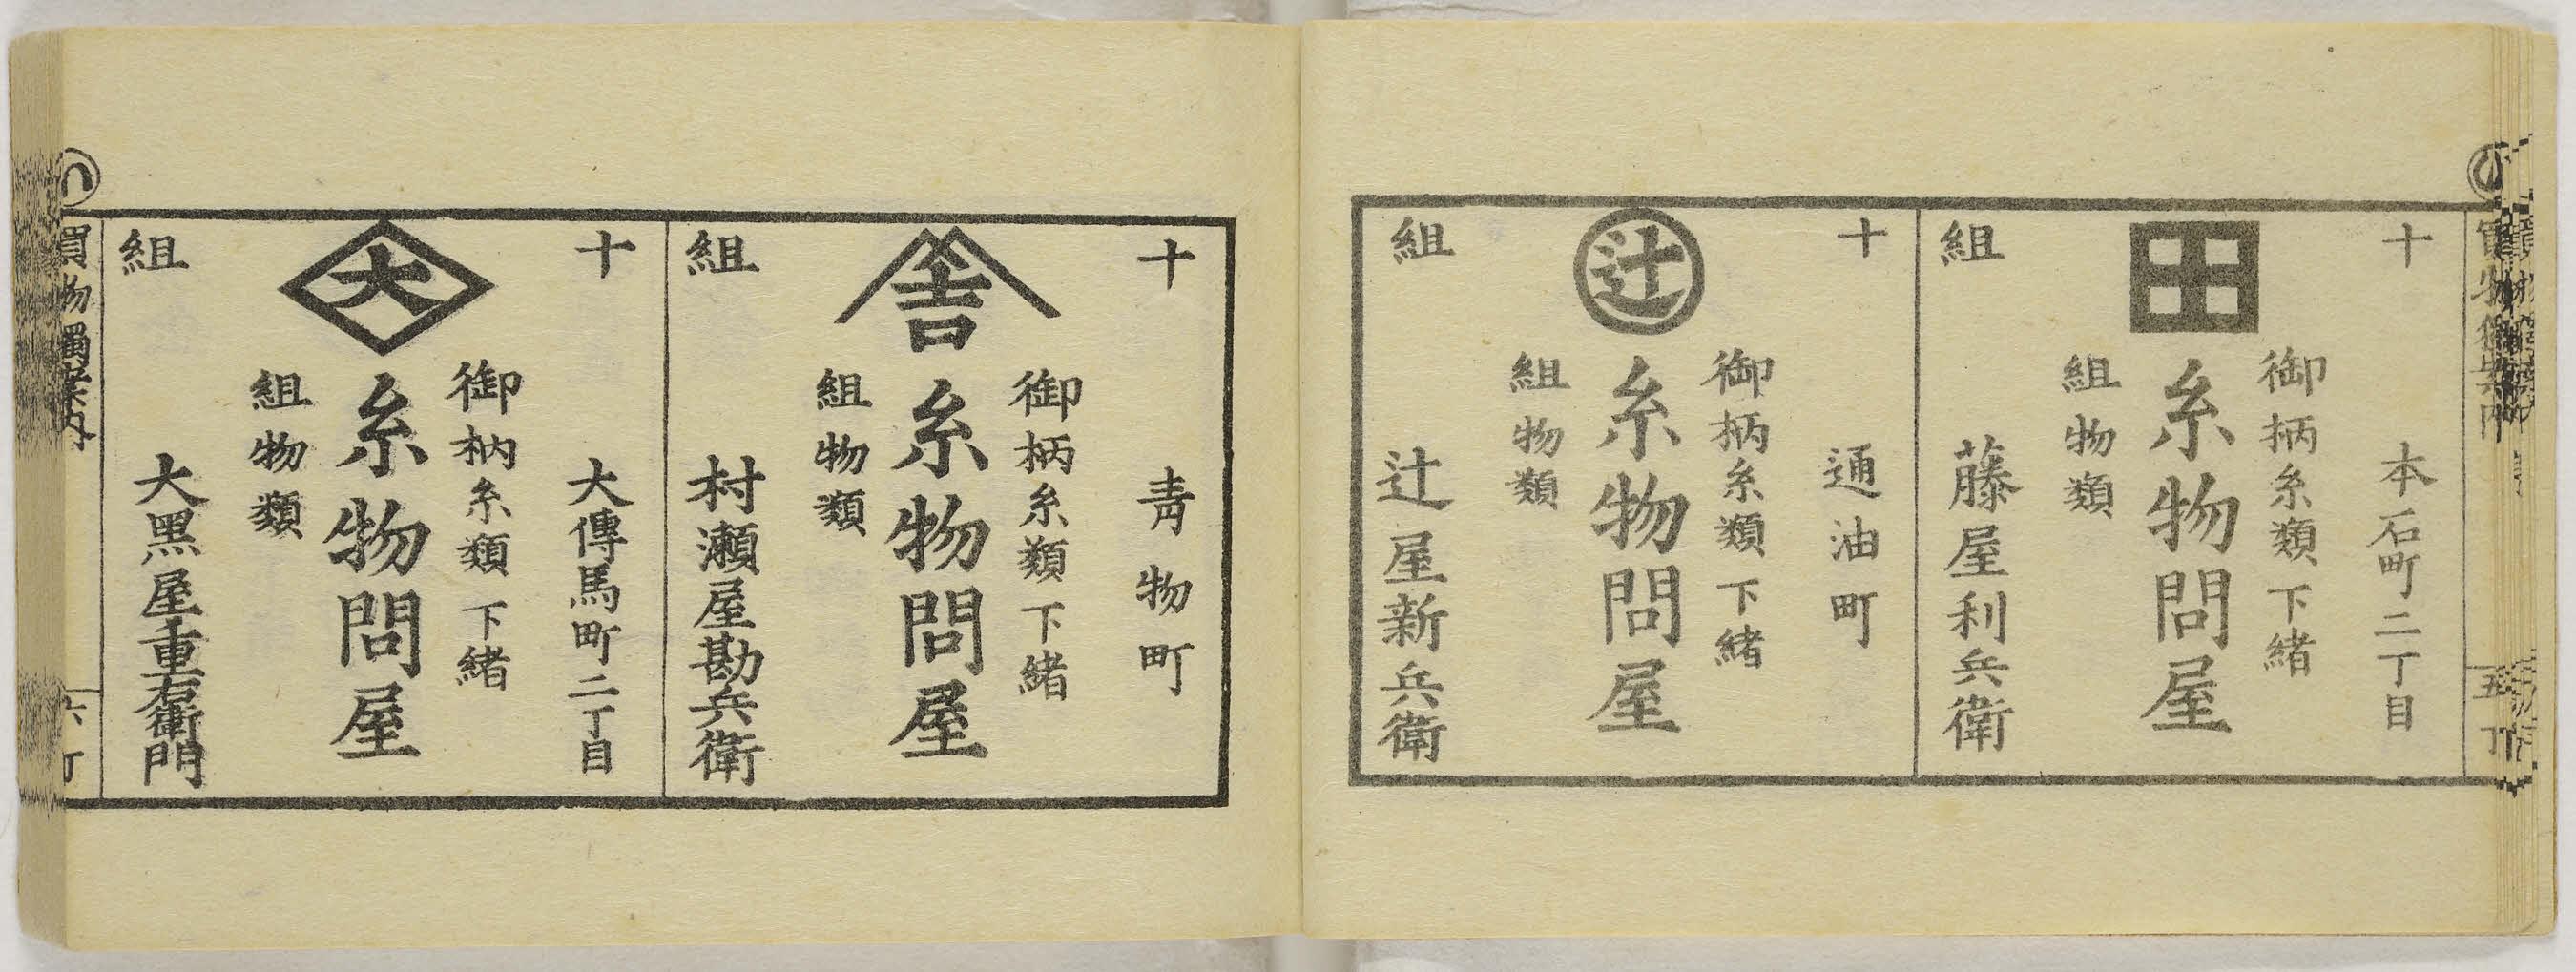 十
組
本石町二丁目
御柄糸類下緒
糸物問屋
組物類
藤屋利兵衛
十
組
辻
通油町
御柄糸類下緒
糸物問屋
組物類
辻屋新兵衛
五丁
十
組
青物町
御柄糸類下緒
糸物問屋
組物類
村瀬屋勘兵衛
十
組
大
大傳馬町二丁目
御柄糸類下緒
糸物問屋
組物類
大黒屋重右衛門
い
買物獨案内
六丁